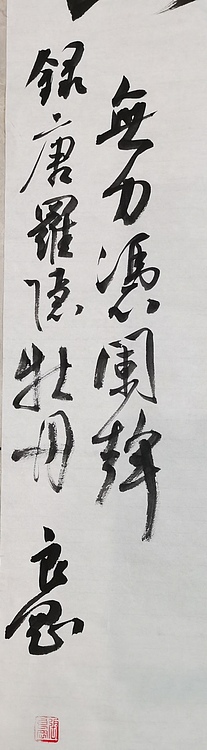 無力憑闌幹
録唐羅隱牡丹 良